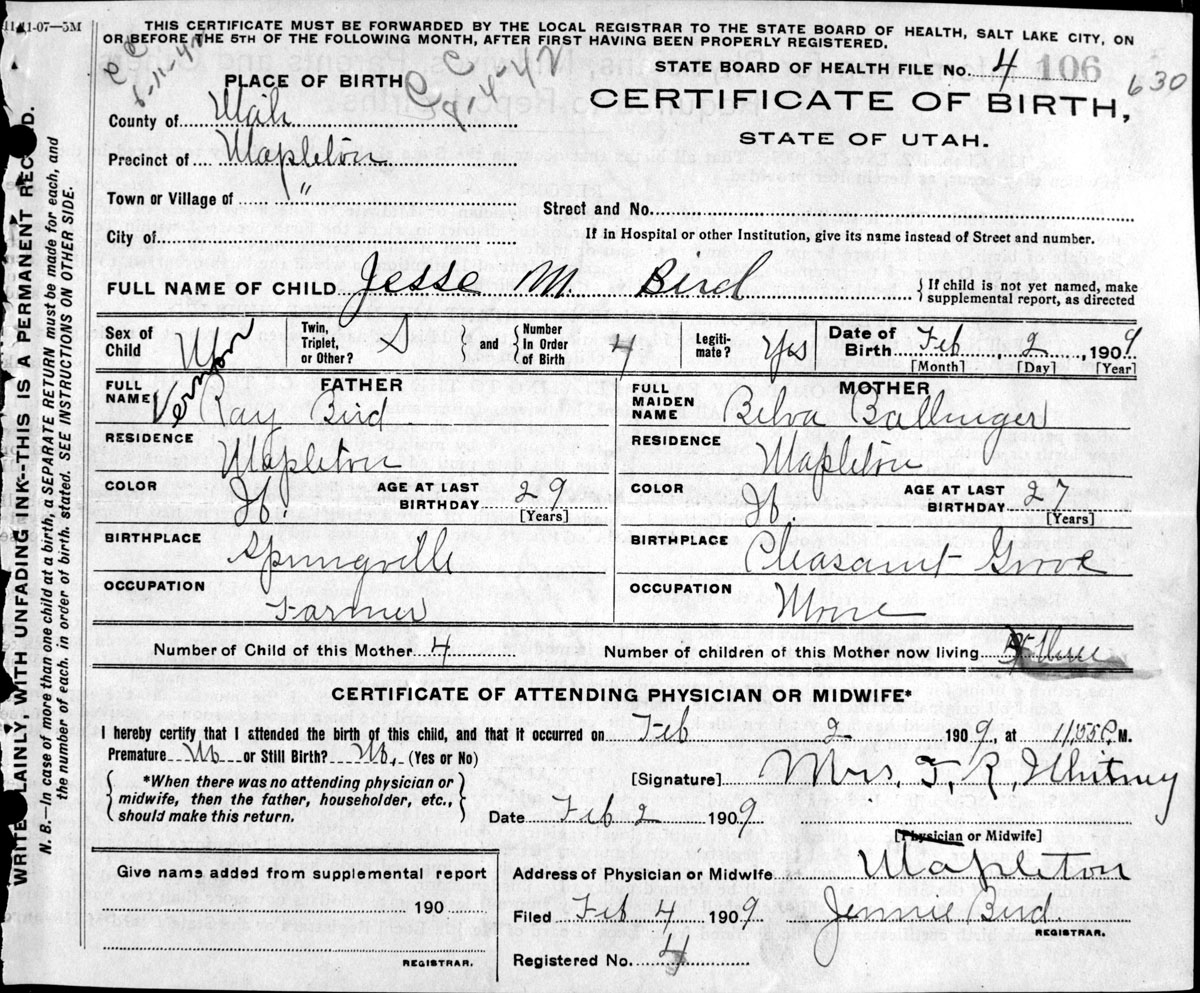 11-07—5M
THIS CERTIFICATE MUST BE FORWARDED BY THE LOCAL REGISTRAR TO THE STATE BOARD OF HEALTH, SALT LAKE CITY, ON
OR BEFORE THE 5TH OF THE FOLLOWING MONTH, AFTER FIRST HAVING BEEN PROPERLY REGISTERED.
STATE BOARD OF HEALTH FILE No. 4 106
630
PLACE OF BIRTH
CERTIFICATE OF BIRTH,
STATE OF UTAH.
County of Utah
Precinct of Mapleton
Town or Village of "
Street and No.
City of
If in Hospital or other Institution, give its name instead of Street and number.
FULL NAME OF CHILD Jesse M. Bird
{ If child is not yet named, make
supplemental report, as directed
Sex of Child
Twin, Triplet, or Other? S } and { Number In Order of Birth 4
Legitimate? Yes
Date of Birth Feb 2, 1909
[Month] [Day] [Year]
FATHER
FULL NAME Vernon Ray Bird
RESIDENCE
Mapleton
COLOR W. AGE AT LAST BIRTHDAY 29
[Years]
BIRTHPLACE
Springville
OCCUPATION
Farmer
MOTHER
FULL MAIDEN NAME Belva Ballinger
RESIDENCE
Mapleton
COLOR W. AGE AT LAST BIRTHDAY 27
[Years]
BIRTHPLACE
Pleasant Grove
OCCUPATION
None
Number of Child of this Mother 4 Number of children of this Mother now living three
CERTIFICATE OF ATTENDING PHYSICIAN OR MIDWIFE*
I hereby certify that I attended the birth of this child, and that it occurred on Feb 2 1909, at 11,55 P. M.
Premature No or Still Birth? No. (Yes or No)
{ *When there was no attending physician or
midwife, then the father, householder, etc.,
should make this return. }
[Signature] Mrs. T. R. Whitney
Date Feb 2 1909
[Physician or Midwife]
Give name added from supplemental report
190
REGISTRAR.
Address of Physician or Midwife Mapleton
Filed Feb 4 1909 Jennie Bird
REGISTRAR.
Registered No. 4
WRITE PLAINLY, WITH UNFADING INK--THIS IS A PERMANENT RECORD.
N. B.—In case of more than one child at a birth, a SEPARATE RETURN must be made for each, and
the number of each. in order of birth. stated. SEE INSTRUCTIONS ON OTHER SIDE.